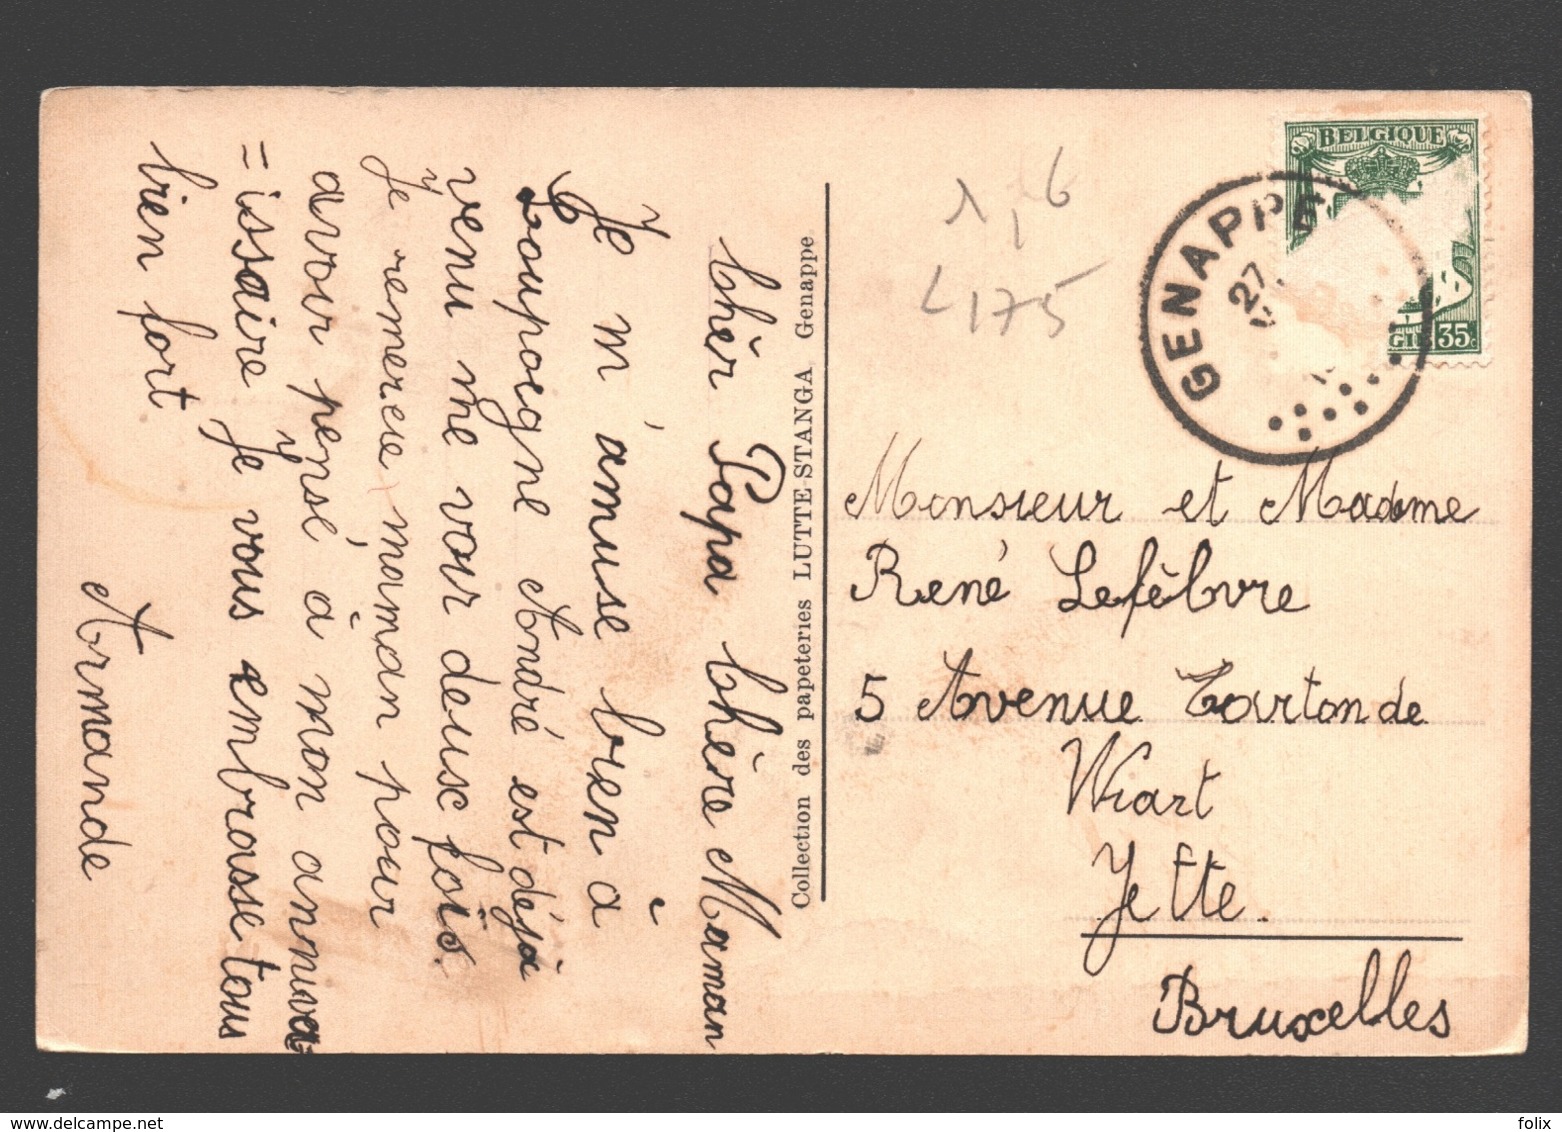 Chèr Papa Chère Maman
Je m'amuse bien à
Loupoigne André est déjà
venu me voir deux fois.
Je remercie màman pour
avoir pensé à mon anniva
=issaire Je vous embrasse tous
bien fort
Armande
Collection des papeteries LUTTE-STANGA Genappe
1,6
L 175
BELGIQUE
GIË 35c
GENAPPE
27
Monsieur et Madame
René Lefèbvre
5 Avenue Carton de
Wiart
Jette.
Bruxelles
folix